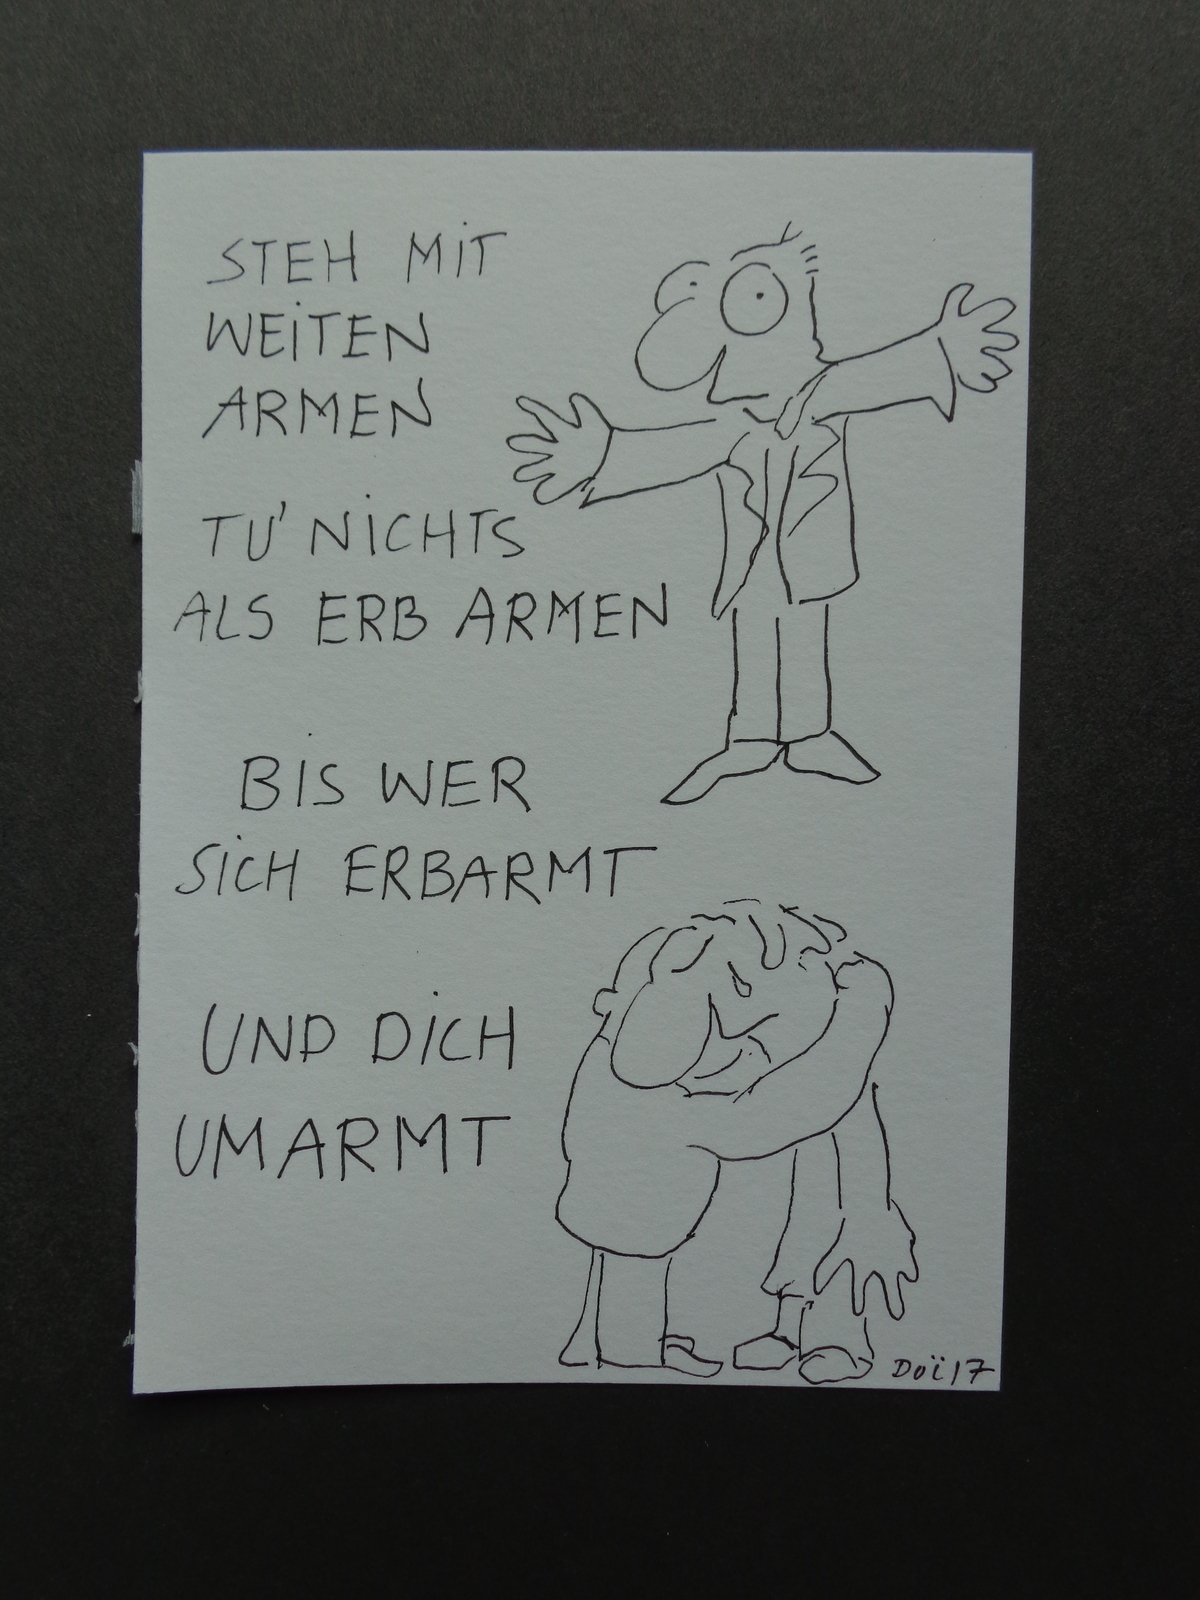 STEH MIT
WEITEN
ARMEN
TU' NICHTS
ALS ERB ARMEN
BIS WER
SICH ERBARMT
UND DICH
UMARMT
Doï 17